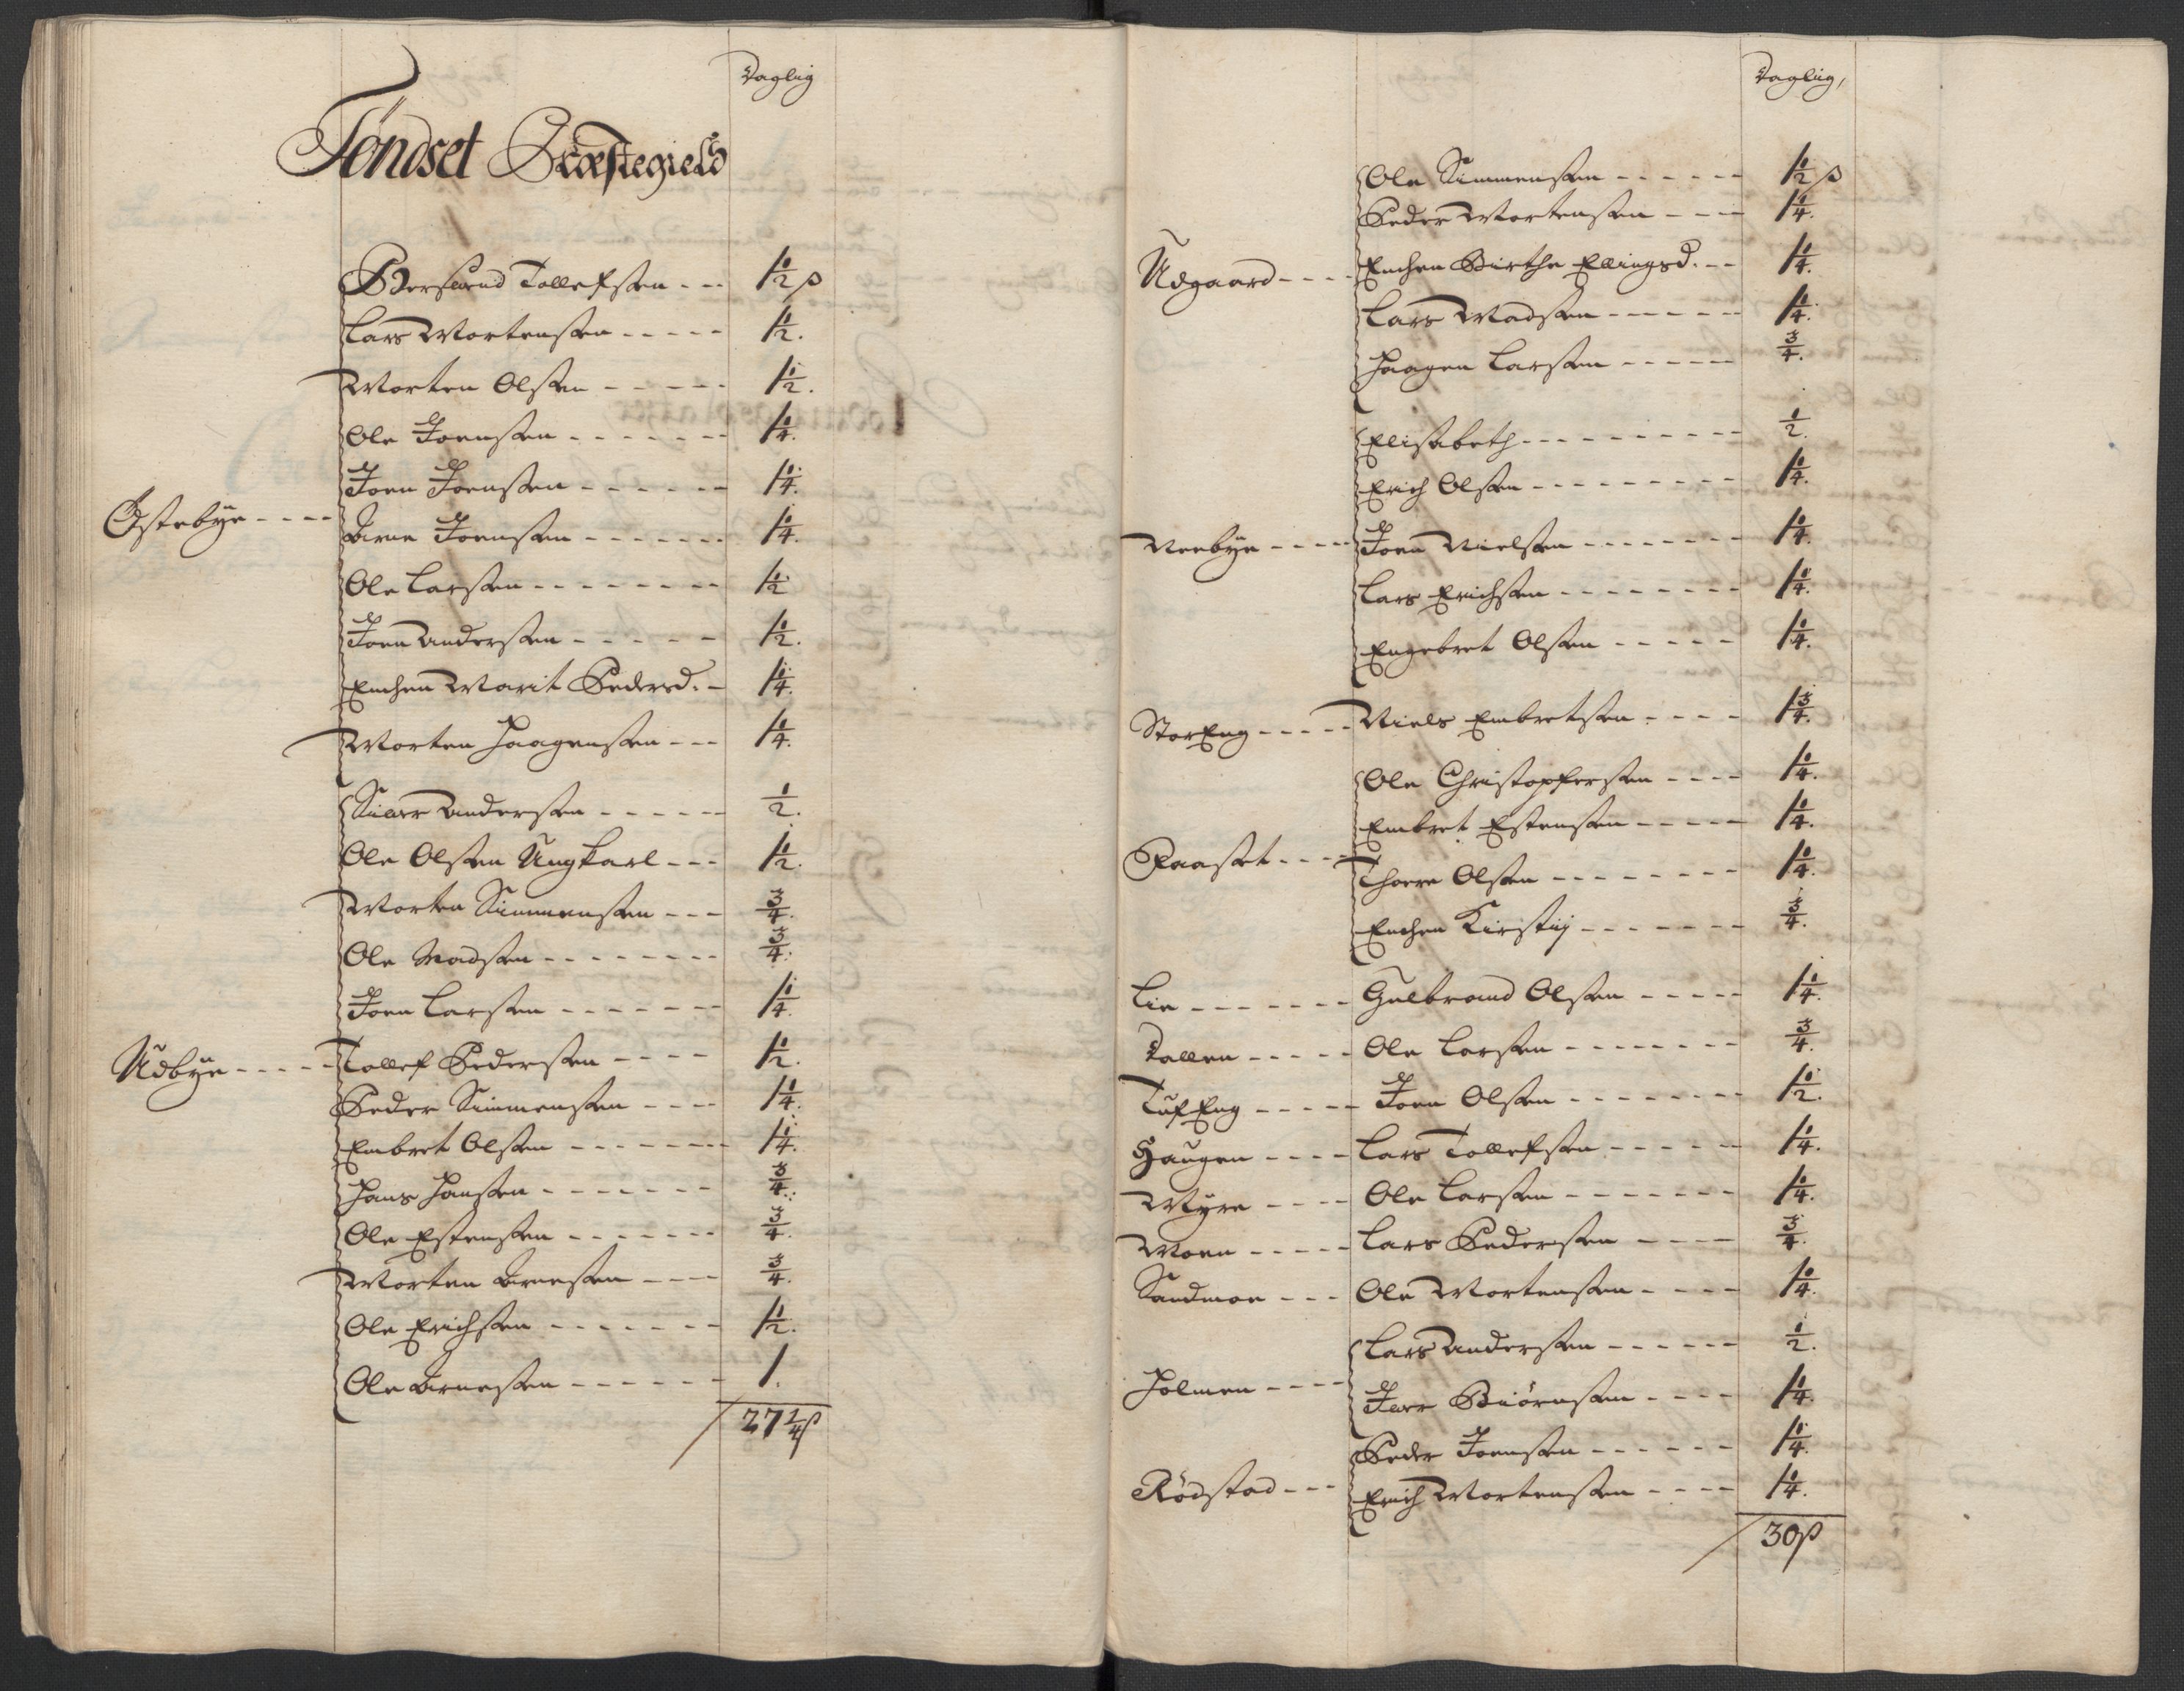 Daglig
Tøndset Præstegield
Berswend Tollefsen - - - 1½ β
Lars Mortensen - - - - - 1½.
Morten Olsen - - - - - 1½.
Ole Joensen - - - - - - 1¼.
Joen Joensen - - - - - - 1¼.
Østebye - - - - Arne Joensen - - - - - - - 1¼.
Ole Larsen - - - - - - - - 1½
Joen Andersen - - - - - 1½.
Enchen Marit Pedersd. - 1¼.
Morten Haagensen - - - 1¼.
Siver Andersen - - - - - ½.
Ole Olsen Ungkarl - - - 1½.
Morten Simmensen - - - ¾.
Ole Madsen - - - - - - - - ¾.
Joen Larsen - - - - - - - 1¼.
Udbye - - - - - Tollef Pedersen - - - - 1½.
Peder Simmensen - - - - 1¼.
Embret Olsen - - - - - - - 1¼.
Hans Hansen - - - - - - - ¾.
Ole Estensen - - - - - - - ¾.
Morten Arnesen - - - - ¾.
Ole Erichsen - - - - - - - 1½.
Ole Arnesen - - - - - - - 1.
27¼ β
Daglig,
Ole Simmensen - - - - - - 1½ β
Peder Mortensen - - - - 1¼.
Udgaard - - - - Enchen Birthe Ellingsd. - - 1¼.
Lars Madsen - - - - - - 1¼.
Haagen Larsen - - - - - ¾.
Elisabeth - - - - - - - - - - ½.
Erich Olsen - - - - - - - - - 1¼.
Neebye - - - - - Joen Nielsen - - - - - - - - 1¼.
Lars Erichsen - - - - - - - - 1¼.
Engebret Olsen - - - - - 1¼.
StorEng - - - - - Niels Embretsen - - - - 1¾.
Ole Christopfersen - - - - 1¼.
Embret Estensen - - - - - 1¼.
Paaset - - - - Thore Olsen - - - - - - - - 1¼.
Enchen Kirstij - - - - - - - ¾.
Lie - - - - - - - Gulbrand Olsen - - - - - 1¼.
Dallen - - - - - Ole Larsen - - - - - - - - ¾.
TufEng - - - - - Joen Olsen - - - - - - - - 1½.
Haugen - - - - Lars Tollefsen - - - - - - 1¼.
Myre - - - - Ole Larsen - - - - - - - 1¼.
Moen - - - - - Lars Pedersen - - - - ¾.
Sandmoe - - - Ole Mortensen - - - - 1¼.
Lars Andersen - - - - - - ½.
Holmen - - - - Iver Biørnsen - - - - 1¼.
Peder Joensen - - - - - - 1¼.
Rødstad - - - Erich Mortensen - - - - 1¼.
30 β